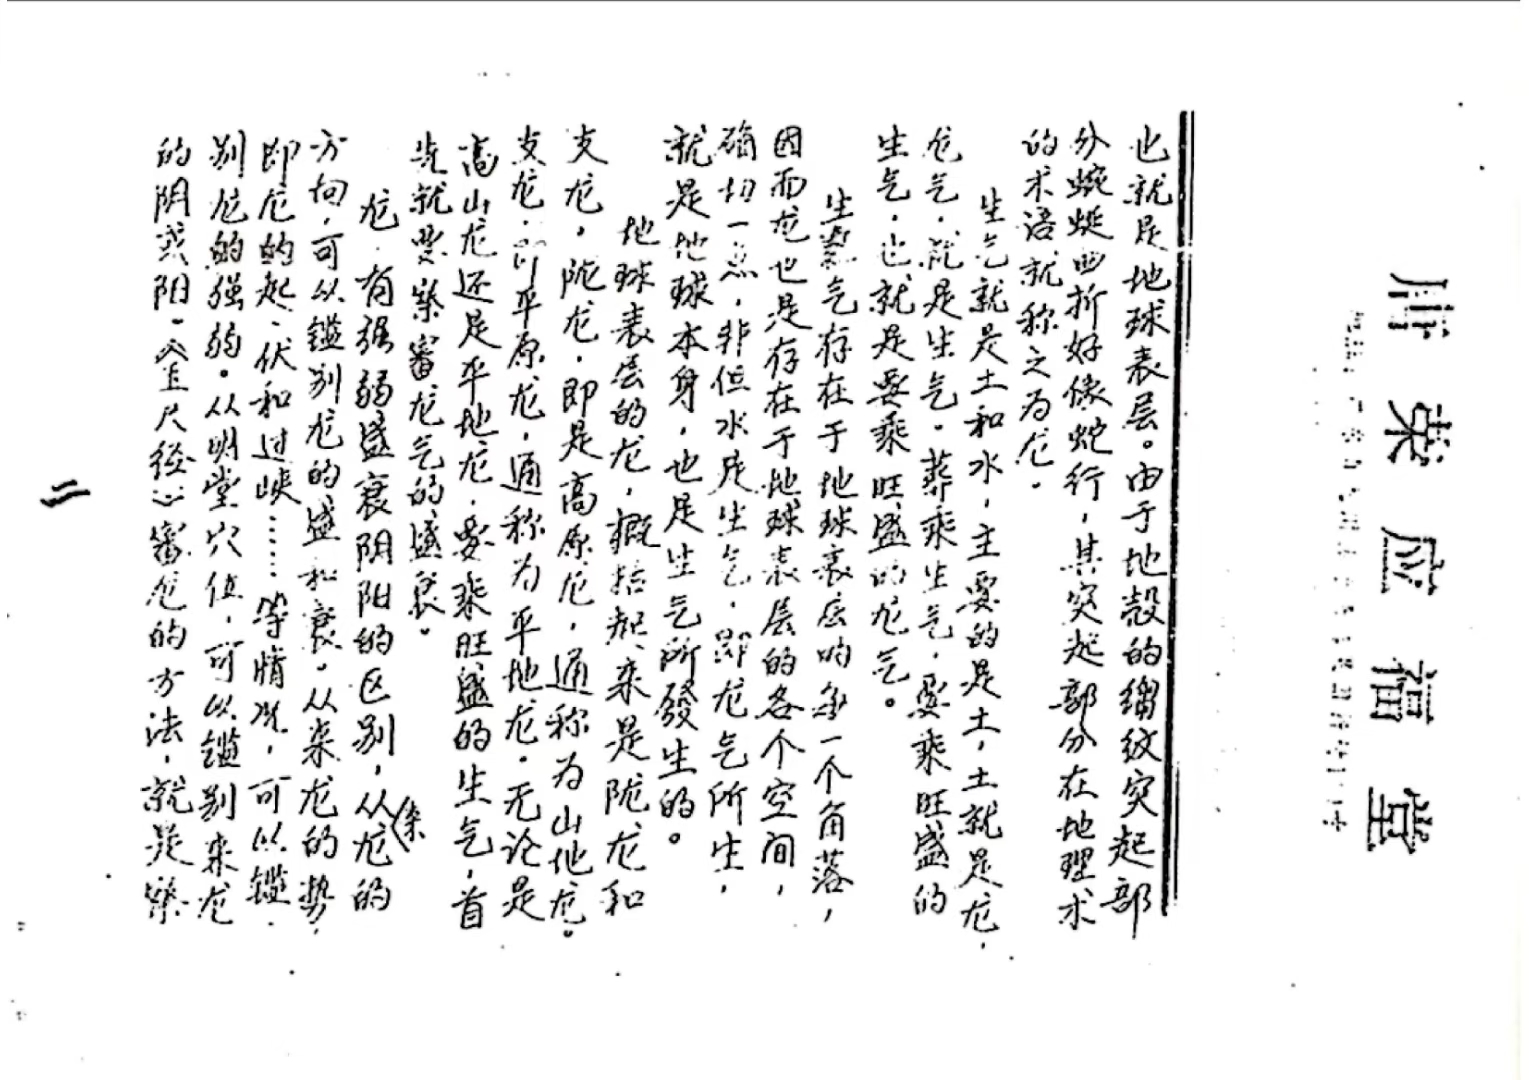 荣应福堂
也就是地球表层。由于地殼的绉纹突起部
分蜿蜒曲折好像蛇行，其突起部分在地理术
的术语就称之为龙。
生气就是土和水，主要的是土，土就是龙，
龙气，就是生气。葬乘生气，要乘旺盛的
生气，也就是要乘旺盛的龙气。
生气存在于地球表层的每一个角落，
因而龙也是存在于地球表层的各个空间，
确切一点，非但水是生气，即龙气所生，
就是地球本身，也是生气所發生的。
地球表层的龙，概括起来是陇龙和
支龙，陇龙，即是高原龙，通称为山地龙。
支龙，即平原龙，通称为平地龙。无论是
高山龙还是平地龙，要乘旺盛的生气，首
先就要察審龙气的盛衰。
龙，有强弱盛衰阴阳的区别，从来龙的
方向，可以鑑别龙的盛和衰。从来龙的势，
即龙的起、伏和过峡……等情况，可以鑑
别龙的强弱。从明堂穴位，可以鑑别来龙
的阴或阳。尺经心審龙的方法，就是察
二